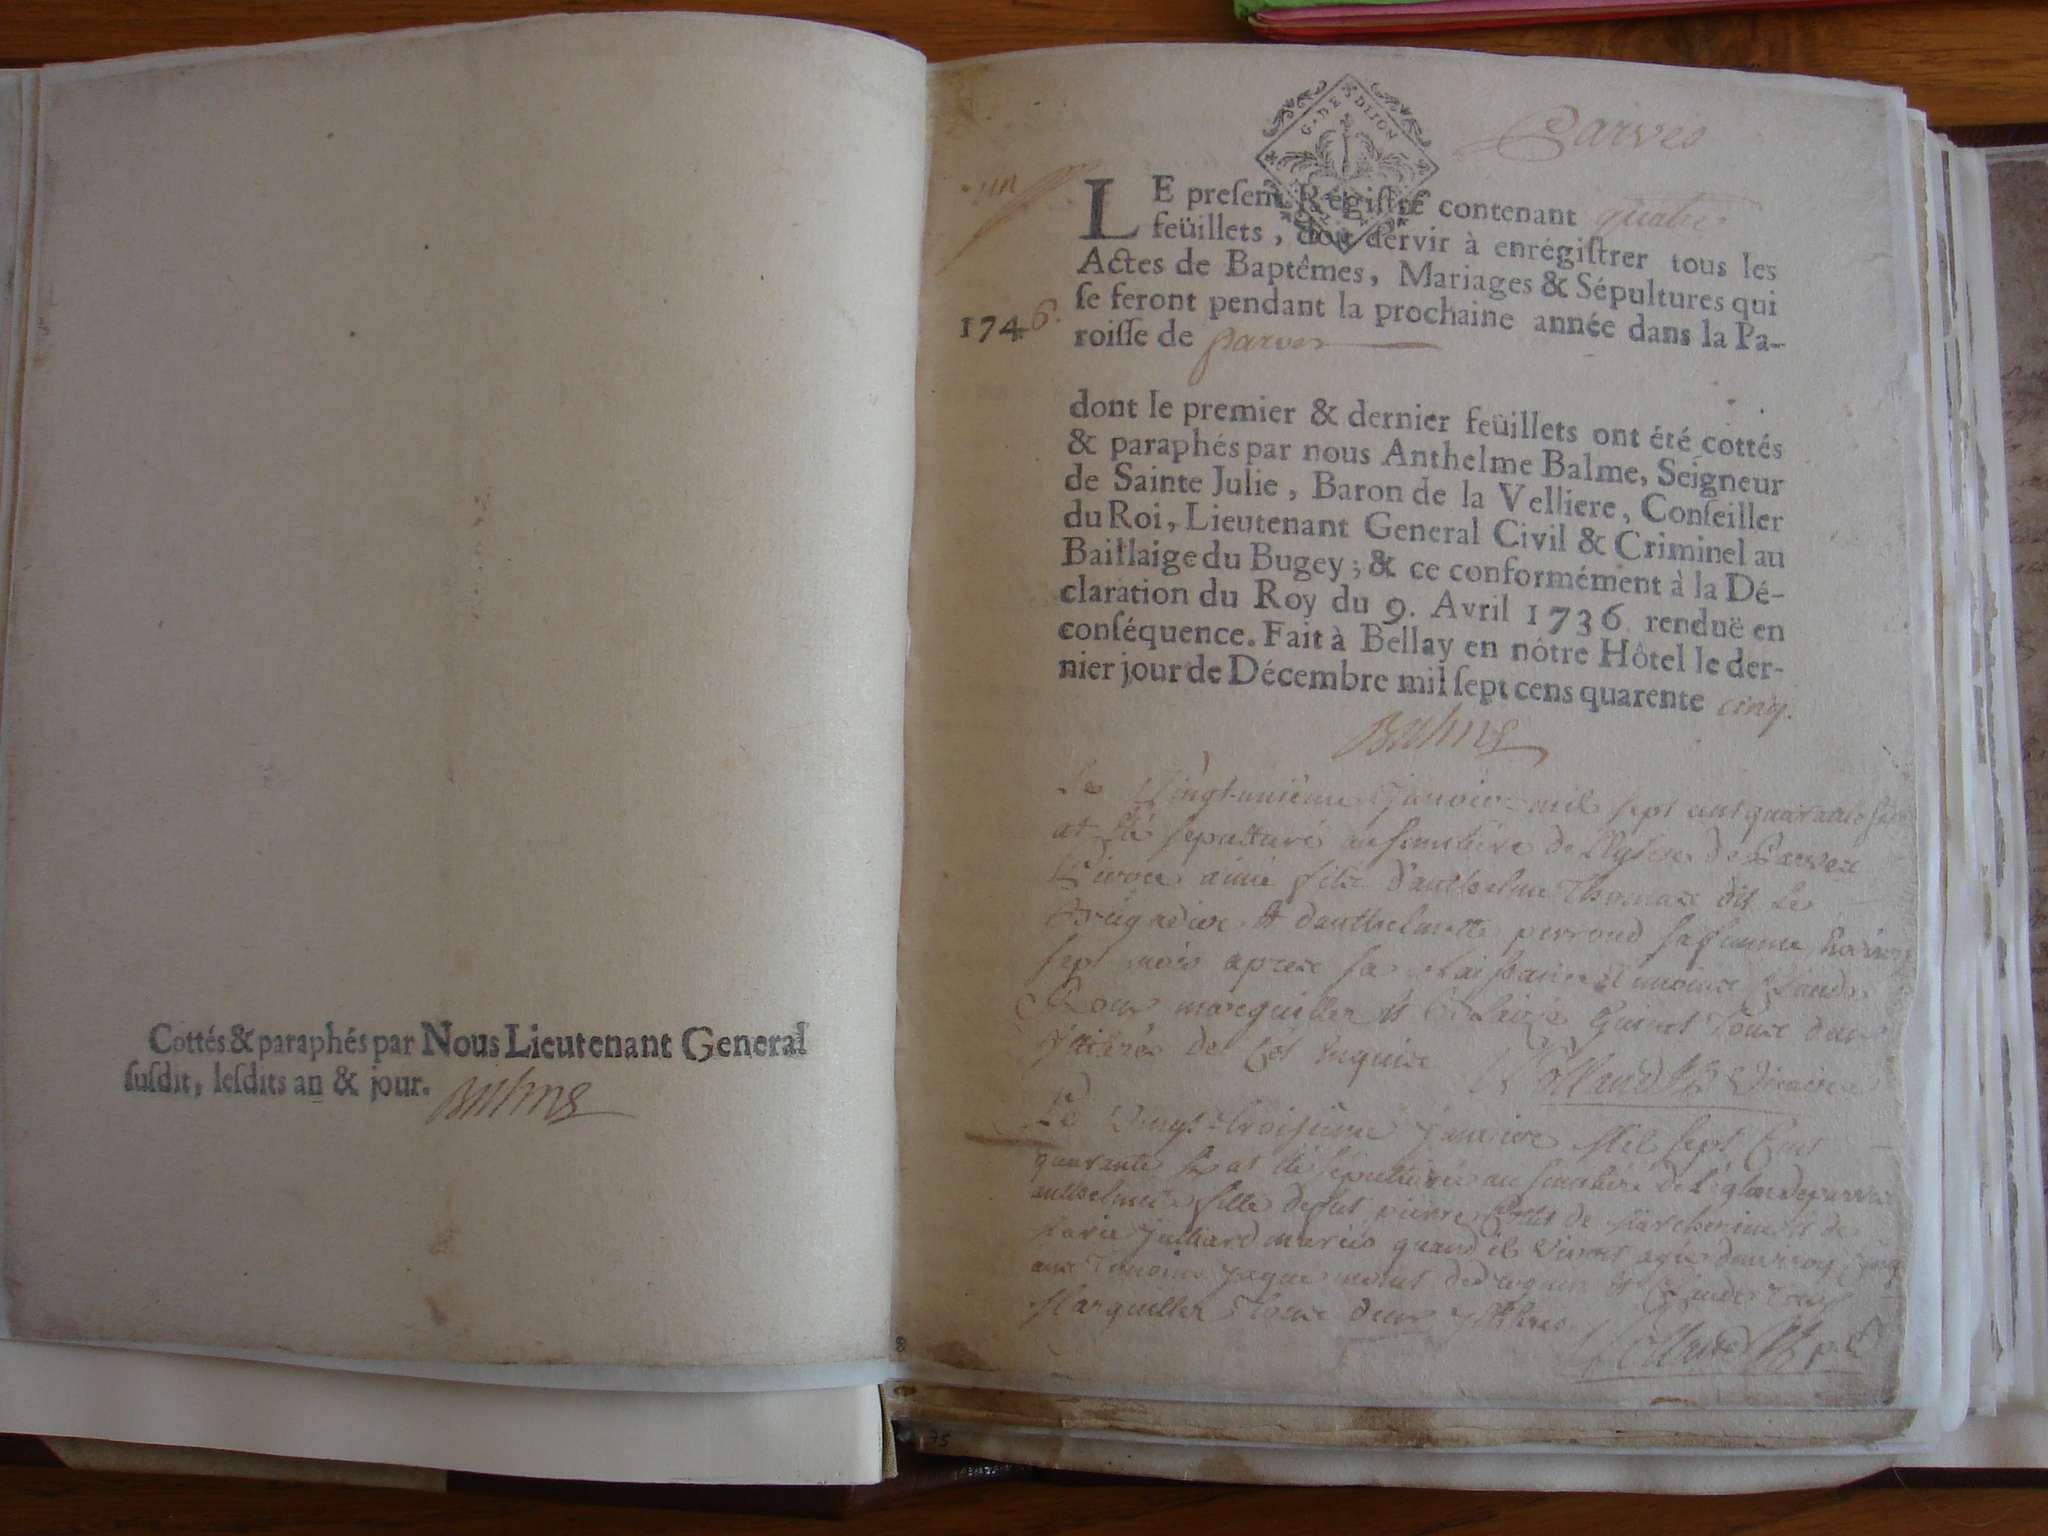 Cottés & paraphés par Nous Lieutenant General
ſuſdit, leſdits an & jour. Balme
G. DE DIJON
Parves
un
LE preſent Régiſtre contenant quatre
feüillets, doit ſervir à enrégiſtrer tous les
Actes de Baptêmes, Mariages & Sépultures qui
ſe feront pendant la prochaine année dans la Pa-
1746.
roiſſe de parves
dont le premier & dernier feüillets ont été cottés
& paraphés par nous Anthelme Balme, Seigneur
de Sainte Julie, Baron de la Velliere, Conſeiller
du Roi, Lieutenant General Civil & Criminel au
Baillaige du Bugey; & ce conformément à la Dé-
claration du Roy du 9. Avril 1736 renduë en
conſéquence. Fait à Bellay en nôtre Hôtel le der-
nier jour de Décembre mil ſept cens quarente cinq.
Balme
Le Vingt-unieme Janvier mil sept cent quarante six
at été sepulturé au semetiere de l'Eglise de Parves
aimé fils d'anthelme Thomas dit le
Brigadier et d'anthelmette perroud sa femme
sept mois apres sa naissance Temoins Claude
Roux marguiller et guinet Tous deux
illitérés de ce enquis Vicaire
Le Vingt-troisieme Janvier Mil sept Cent
quarante six at été sepulturée au semetiere de l'eglise de parves
anthelmette fille de fut pierre de et de
Marie Julliard mariés quand il vivoit agée d'environ cinq
ans Temoins et Claude Roux
Marguiller Tous deux illitérés
8
75